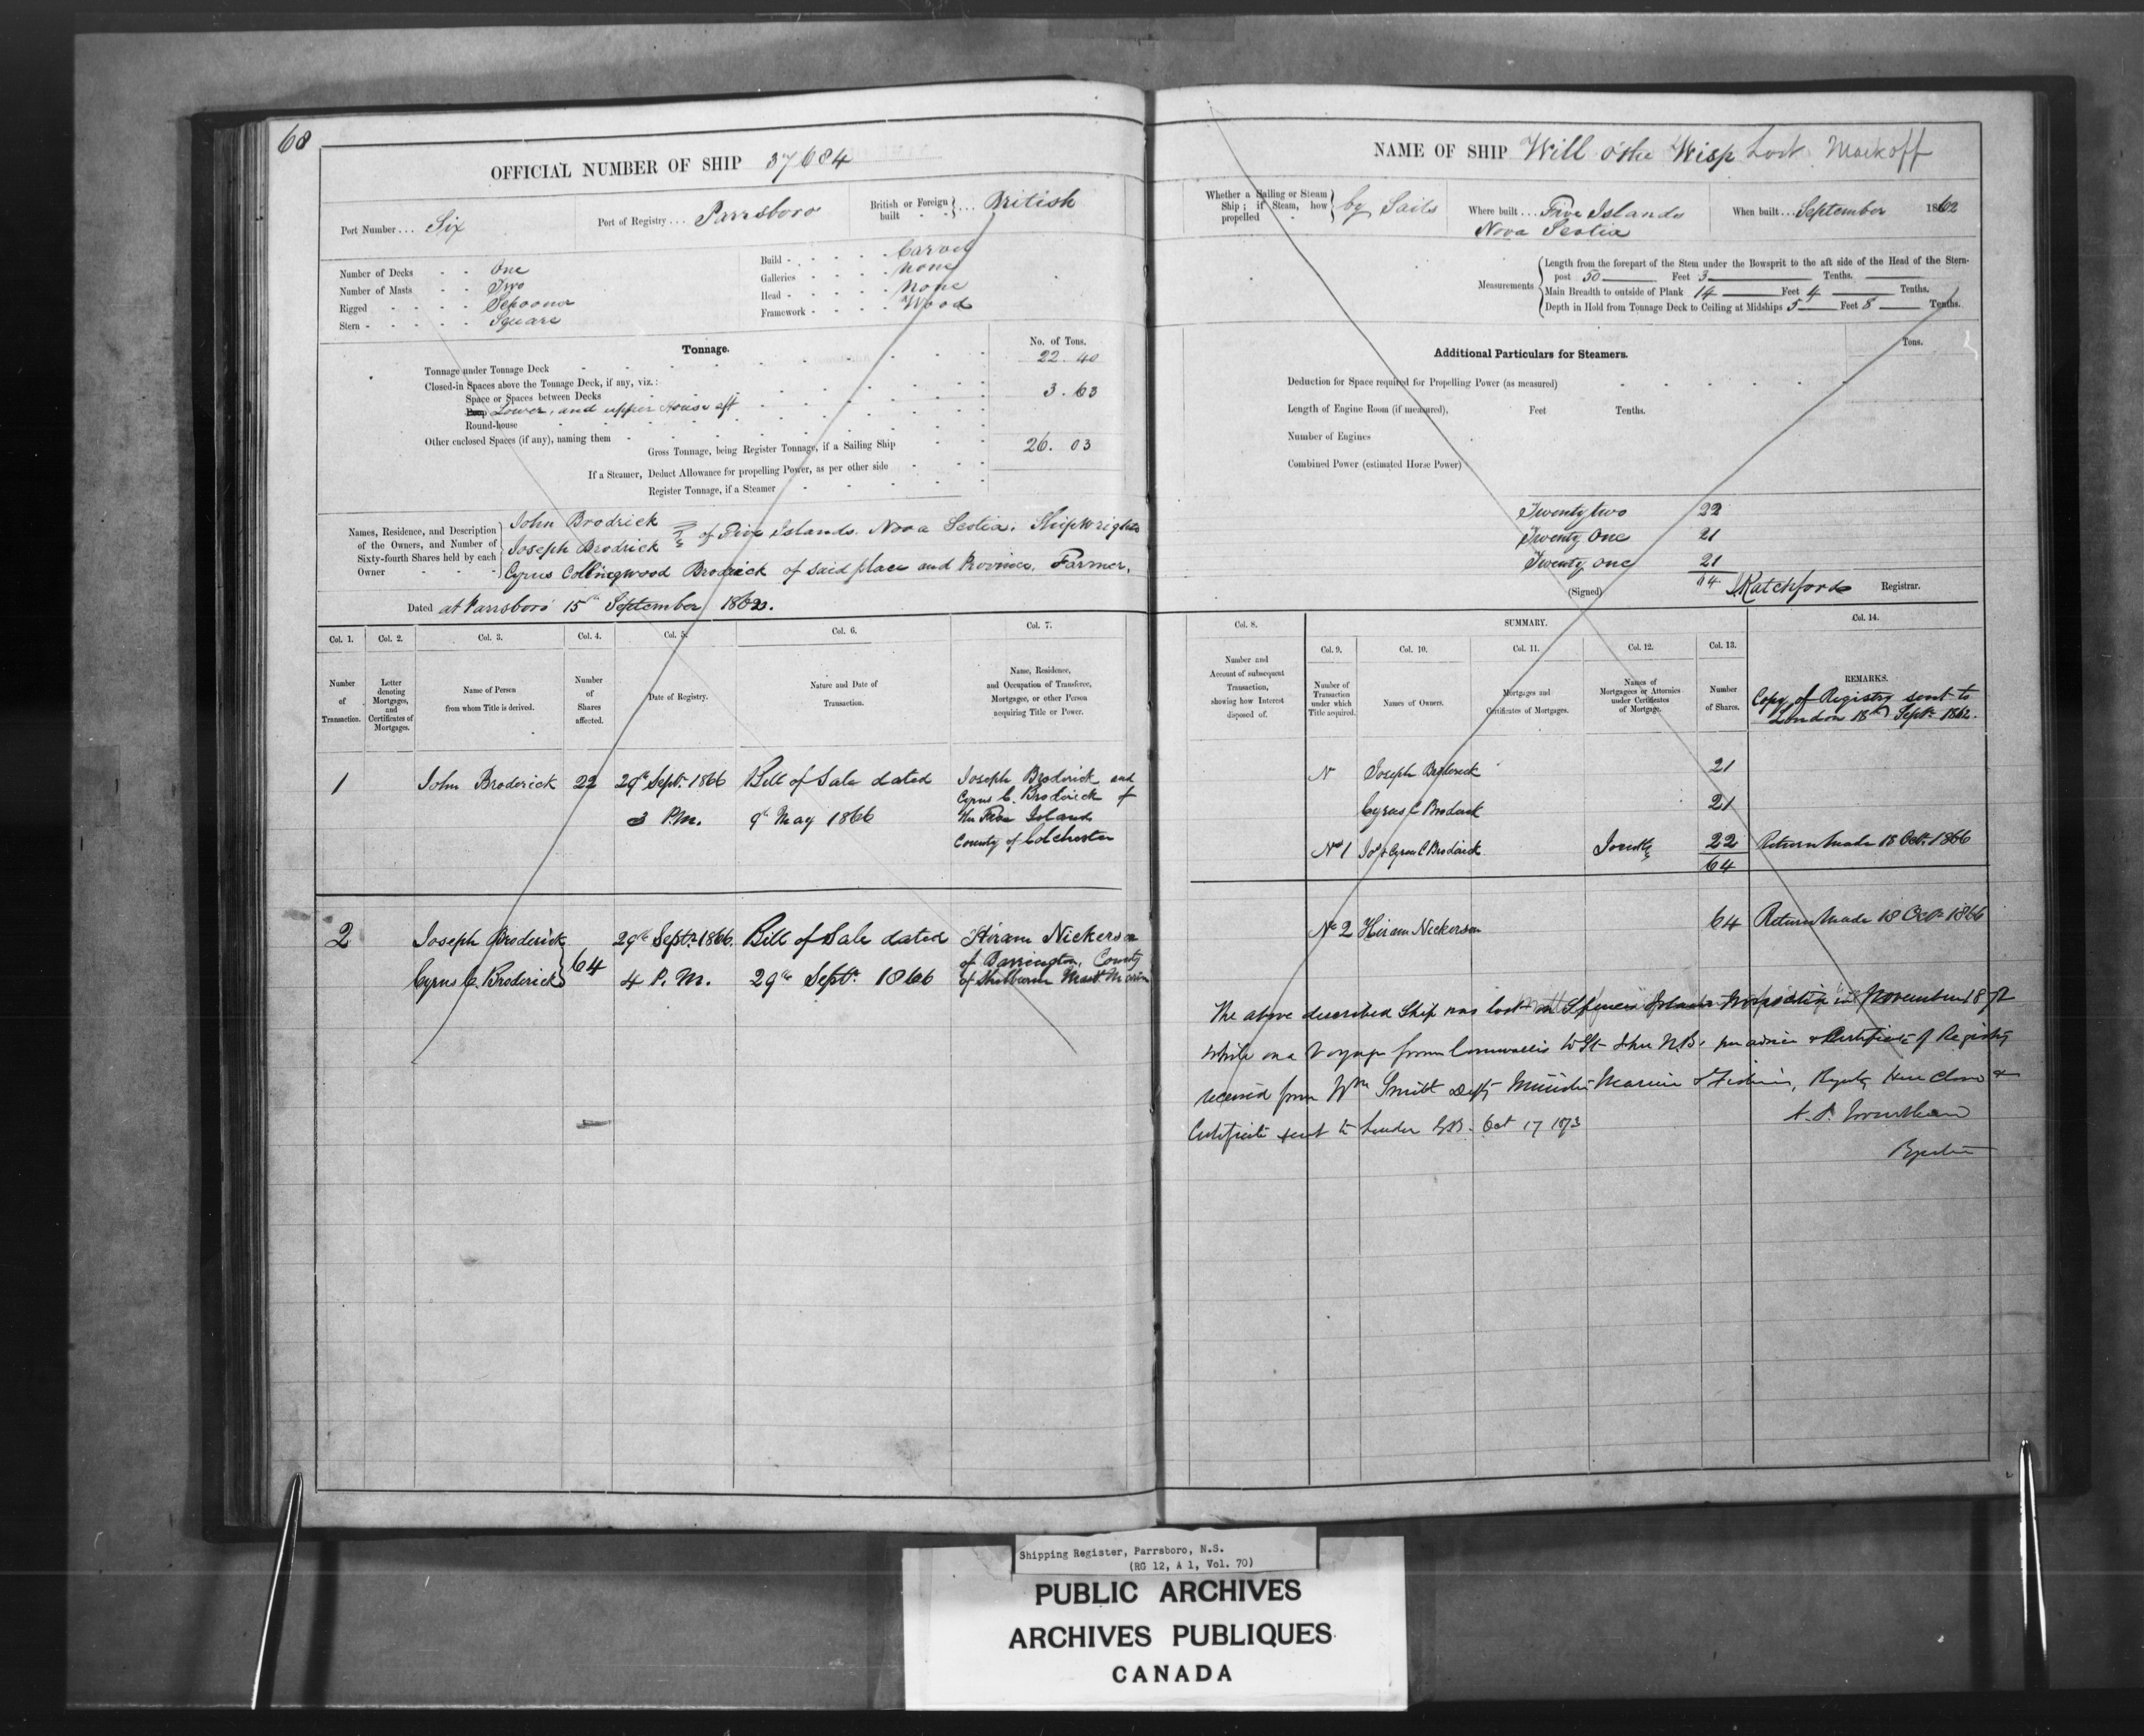 68
OFFICIAL NUMBER OF SHIP 37684
Port Number... Six
Port of Registry... Parrsboro
British or Foreign built } ... British
Number of Decks - - One
Number of Masts - - Two
Rigged - - - - Schooner
Stern - - - - - Square
Build - - - - - Carvel
Galleries - - - - None
Head - - - - - None
Framework - - - - Wood
Tonnage.
No. of Tons.
Tonnage under Tonnage Deck 22. 40
Closed-in Spaces above the Tonnage Deck, if any, viz.:
Space or Spaces between Decks
Poop Lower, and upper House aft 3. 63
Round-house
Other enclosed Spaces (if any), naming them
Gross Tonnage, being Register Tonnage, if a Sailing Ship 26. 03
If a Steamer, Deduct Allowance for propelling Power, as per other side
Register Tonnage, if a Steamer
Names, Residence, and Description of the Owners, and Number of Sixty-fourth Shares held by each Owner
John Brodrick
Joseph Brodrick } of Five Islands. Nova Scotia. Shipwrights
Cyrus Collingwood Brodrick of said place and Province, Farmer.
Dated at Parrsboro 15th September 1862.
Col. 1. Col. 2. Col. 3. Col. 4. Col. 5. Col. 6. Col. 7.
Number of Transaction.
Letter denoting Mortgages, and Certificates of Mortgages.
Name of Person from whom Title is derived.
Number of Shares affected.
Date of Registry.
Nature and Date of Transaction.
Name, Residence, and Occupation of Transferee, Mortgagee, or other Person acquiring Title or Power.
1 John Broderick 22 29th Sept. 1866 Bill of Sale dated Joseph Broderick and
Cyrus C. Broderick of
3 P.M. 9th May 1866 the Five Islands
County of Colchester
2 Joseph Broderick 29th Sept. 1866. Bill of Sale dated Hiram Nickerson
of Barrington, County
Cyrus C. Broderick } 64 4 P.M. 29th Sept. 1866 of Shelburne Mast Mariner
NAME OF SHIP Will o'the Wisp Lost Mark off
Whether a Sailing or Steam Ship; if Steam, how propelled } by Sails
Where built... Five Islands
Nova Scotia
When built... September 1862
Measurements
Length from the forepart of the Stem under the Bowsprit to the aft side of the Head of the Stern-
post 50 Feet 3 Tenths.
Main Breadth to outside of Plank 14 Feet 4 Tenths.
Depth in Hold from Tonnage Deck to Ceiling at Midships 5 Feet 8 Tenths.
Additional Particulars for Steamers.
Tons.
Deduction for Space required for Propelling Power (as measured)
Length of Engine Room (if measured), Feet Tenths.
Number of Engines
Combined Power (estimated Horse Power)
Twenty two 22
Twenty One 21
Twenty one 21
64
(Signed) Ratchford Registrar.
Col. 8. SUMMARY. Col. 14.
Col. 9. Col. 10. Col. 11. Col. 12. Col. 13.
Number and Account of subsequent Transaction, showing how Interest disposed of.
Number of Transaction under which Title acquired.
Names of Owners.
Mortgages and Certificates of Mortgages.
Names of Mortgagees or Attornies under Certificates of Mortgage.
Number of Shares.
REMARKS.
Copy of Registry sent to
London 18th Sept. 1862.
N Joseph Broderick 21
Cyrus C Broderick 21
No 1 Jos & Cyrus C Broderick Jointly 22 Return made 18 Oct. 1866
64
No 2 Hiram Nickerson 64 Return made 18 Oct. 1866
The above described Ship was lost Spencers Island in November
while on a Voyage from Cornwallis to St John N.B. per advice & Certificate of Registry
received from Wm Smith Depty Minister Marine & Fisheries, Registry here closed &
Certificate sent to London G.B. Oct 17 1873
Shipping Register, Parrsboro, N.S.
(RG 12, A 1, Vol. 70)
PUBLIC ARCHIVES
ARCHIVES PUBLIQUES
CANADA